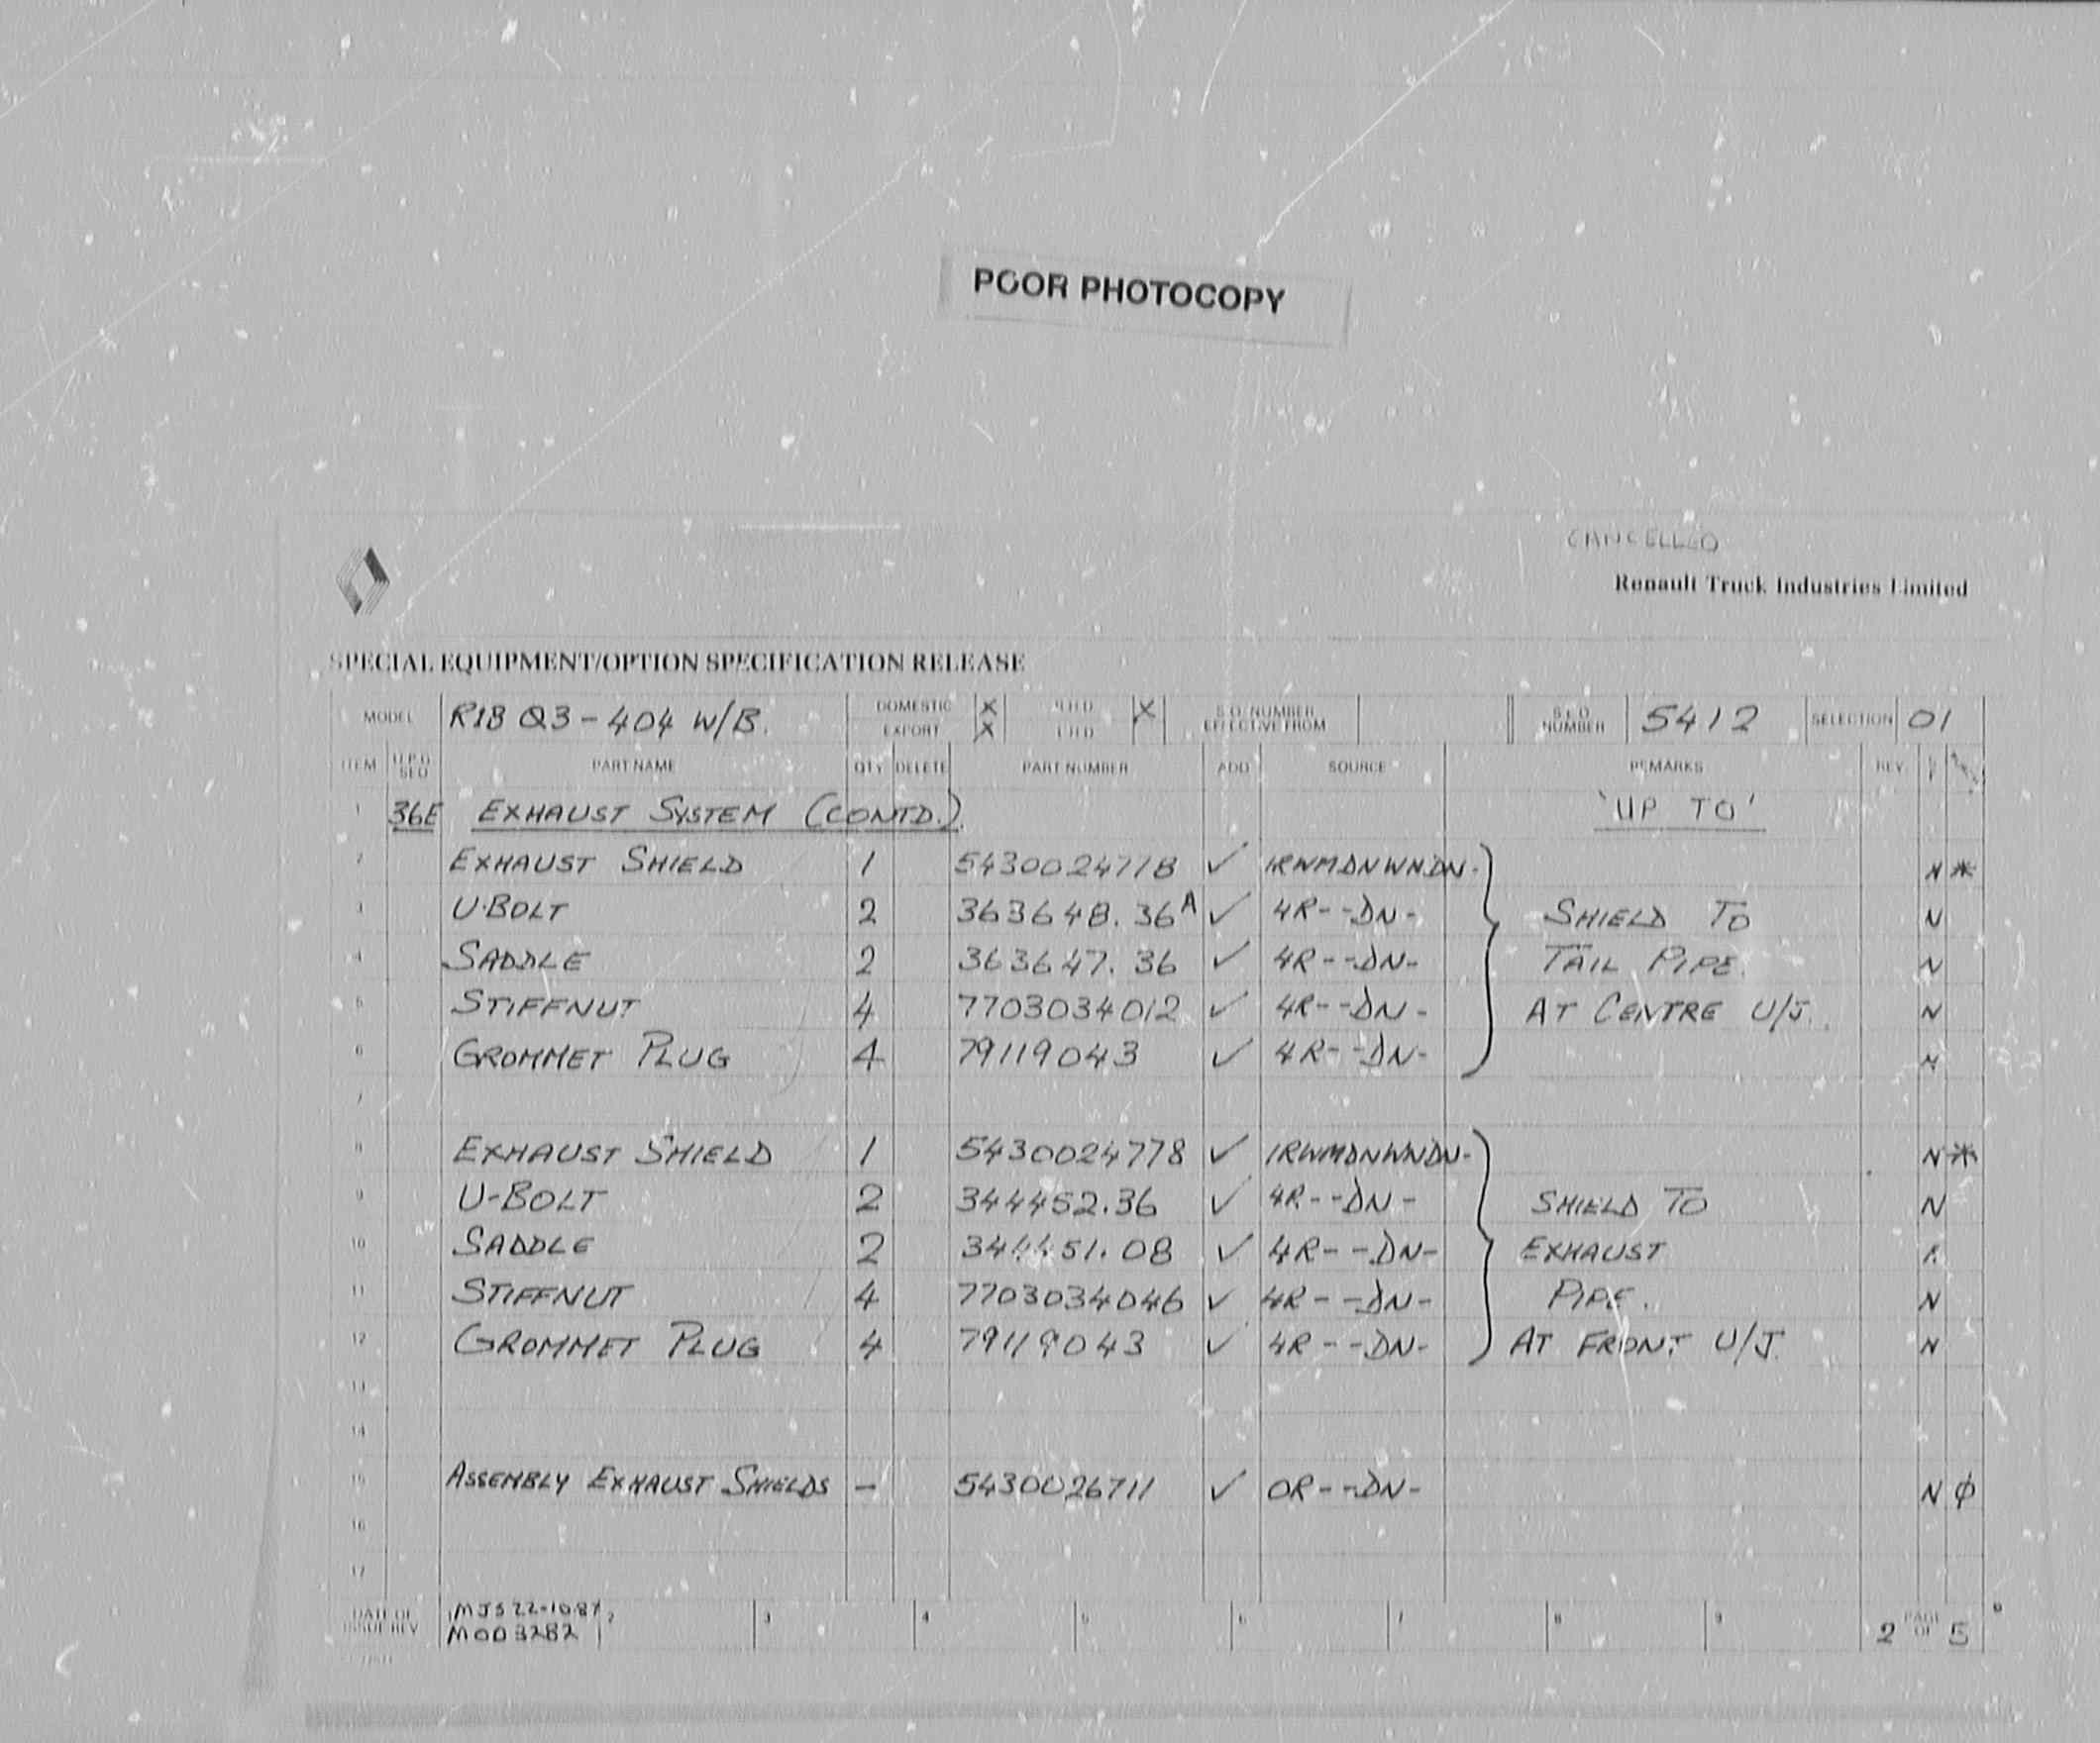 POOR PHOTOCOPY
CANCELLED
Renault Truck Industries Limited
SPECIAL EQUIPMENT/OPTION SPECIFICATION RELEASE
MODEL R18 Q3-404 W/B. DOMESTIC X X S.O. NUMBER S.E.O. NUMBER 5412 SELECTION 01
EXPORT X EFFECTIVE FROM
ITEM PART NAME QTY DELETE PART NUMBER ADD SOURCE REMARKS REV.
1 36E EXHAUST SYSTEM (CONTD.) 'UP TO'
2 EXHAUST SHIELD 1 5430024778 ✓ 1RWMDNWNDN- N *
3 U-BOLT 2 363648.36A ✓ 4R--DN- SHIELD TO N
4 SADDLE 2 363647.36 ✓ 4R--DN- TAIL PIPE. N
5 STIFFNUT 4 7703034012 ✓ 4R--DN- AT CENTRE U/J. N
6 GROMMET PLUG 4 79119043 ✓ 4R--DN- N
7
8 EXHAUST SHIELD 1 5430024778 ✓ 1RWMDNWNDN- N *
9 U-BOLT 2 344452.36 ✓ 4R--DN- SHIELD TO N
10 SADDLE 2 344451.08 ✓ 4R--DN- EXHAUST
11 STIFFNUT 4 7703034046 ✓ 4R--DN- PIPE. N
12 GROMMET PLUG 4 79119043 ✓ 4R--DN- AT FRONT U/J. N
13
14
15 ASSEMBLY EXHAUST SHIELDS - 5430026711 ✓ 0R--DN- N ϕ
16
17
DATE OF MJS 22-10-87 2 3 4 5 6 7 8 9 PAGE
ISSUE/REV MOD 3282 2 OF 5